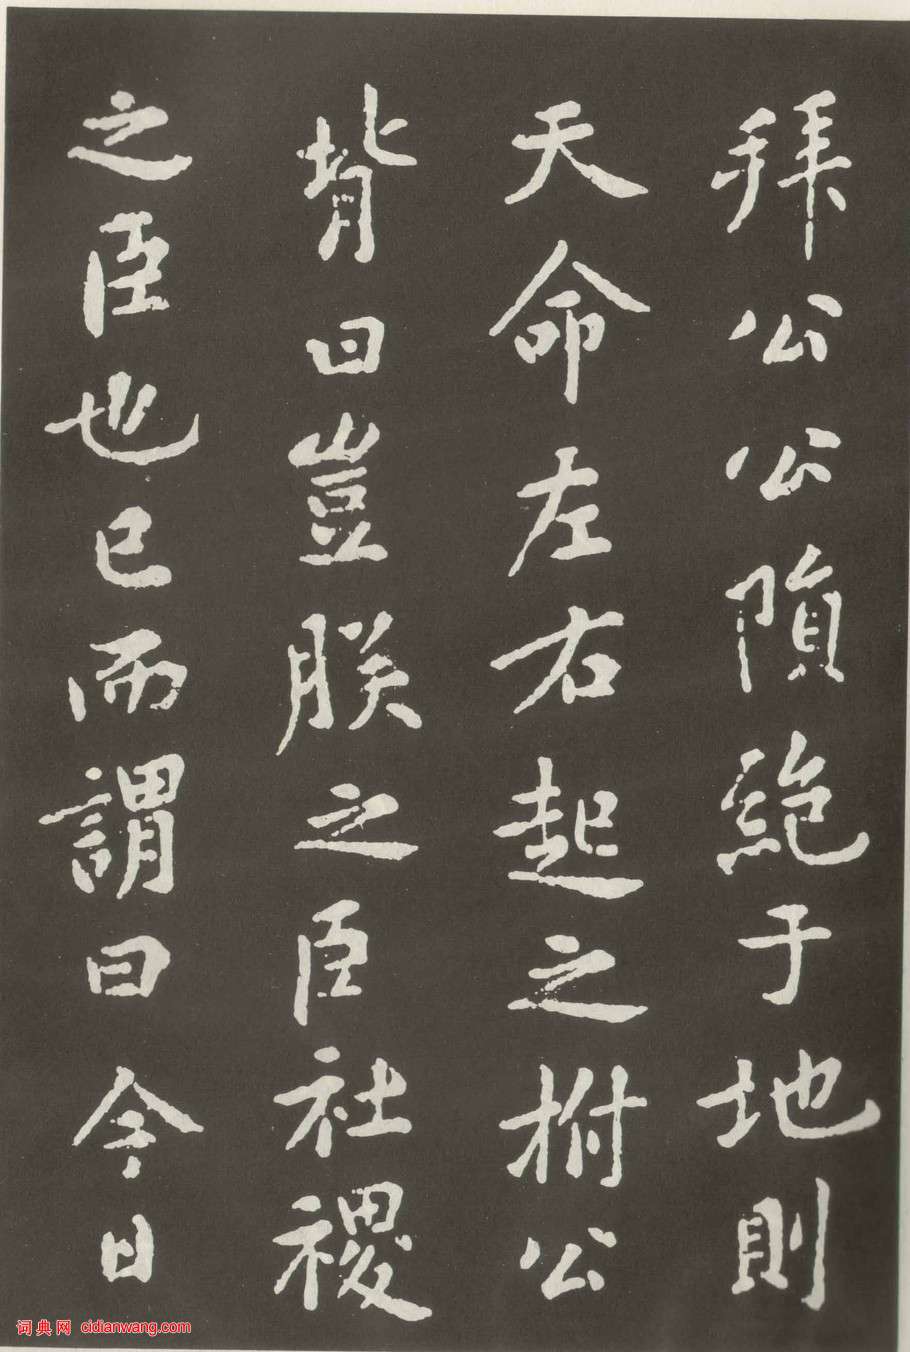 拜公公隕絕于地則
天命左右起之拊公
背曰豈朕之臣社稷
之臣也已而謂曰今日
词典网 cidianwang.com